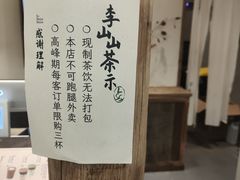 李山山茶示
○现制茶饮无法打包
○本店不可跑腿外卖
○高峰期每客订单限购三杯
感谢理解